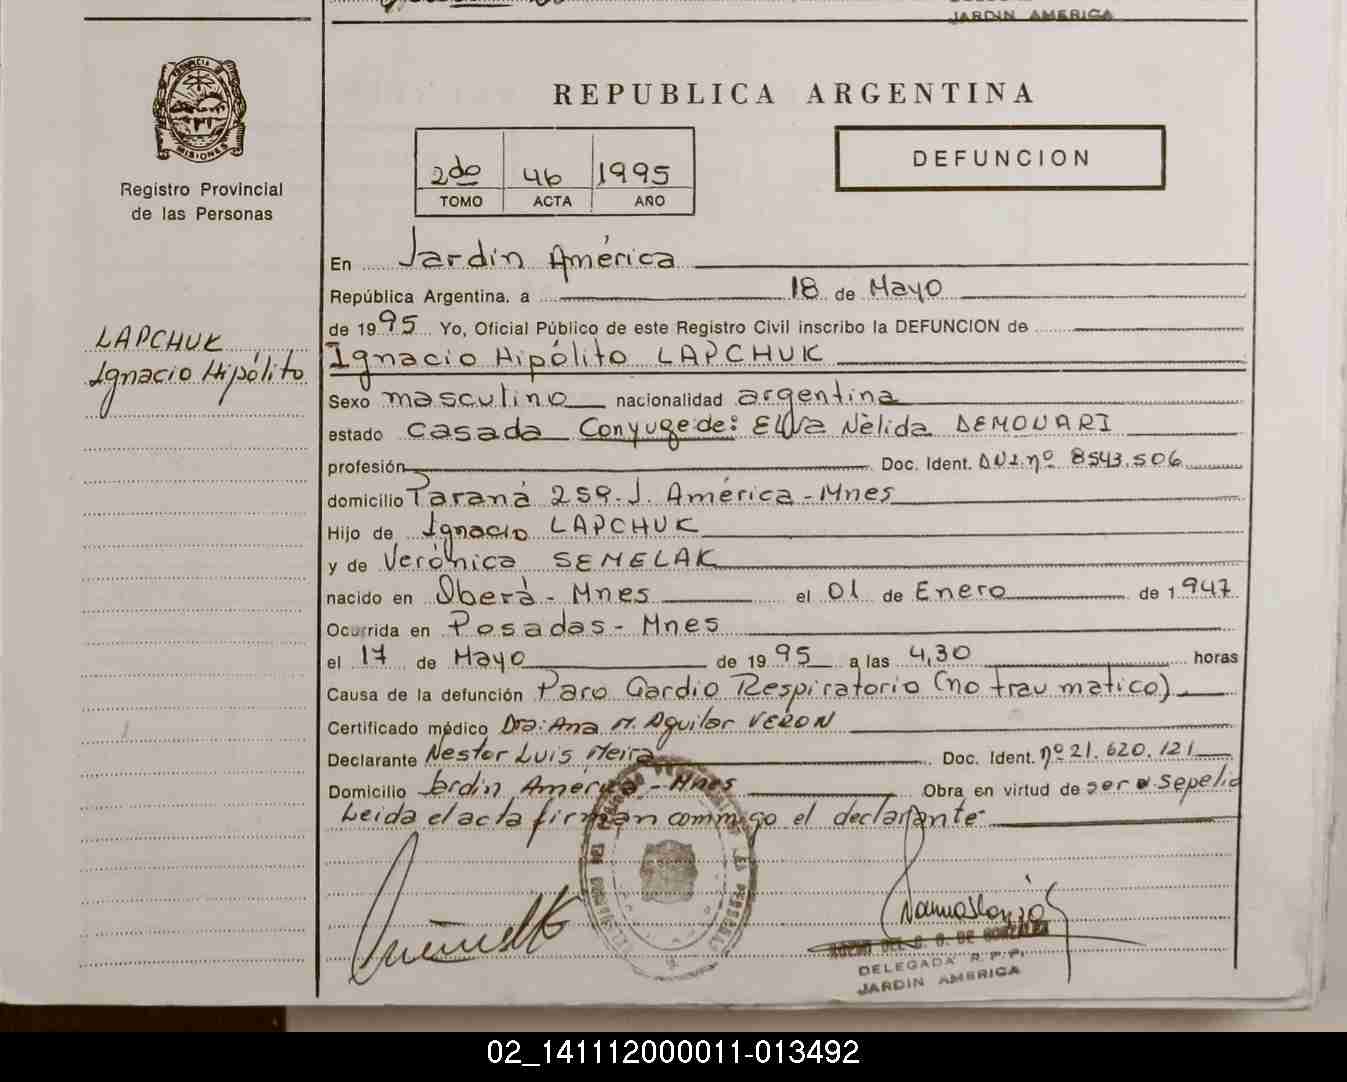 JARDIN AMERICA
PROVINCIA DE
MISIONES
Registro Provincial
de las Personas
REPUBLICA ARGENTINA
2do 46 1995
TOMO ACTA AÑO
DEFUNCION
LAPCHUK
Ignacio Hipólito
En Jardín América
República Argentina, a 18 de Mayo
de 1995 Yo, Oficial Público de este Registro Civil inscribo la DEFUNCION de
Ignacio Hipólito LAPCHUK
Sexo masculino nacionalidad argentina
estado casada Conyuge de: Elva Nèlida DEMOUARI
profesión Doc. Ident. DNI. nº 8543.506
domicilio Paraná 259. J. América - Mnes
Hijo de Ignacio LAPCHUK
y de Verónica SEMELAK
nacido en Oberá - Mnes el 01 de Enero de 1947
Ocurrida en Posadas - Mnes
el 17 de Mayo de 1995 a las 4,30 horas
Causa de la defunción Paro Cardio Respiratorio (no traumatico)
Certificado médico Dra: Ana M. Aguilar VERON
Declarante Nestor Luis Meira Doc. Ident. nº 21.620.121
Domicilio Jardín América - Mnes Obra en virtud de ser sepelio
Leida el acta firman conmigo el declarante
DELEGADA R.P.P.
JARDIN AMERICA
02_141112000011-013492